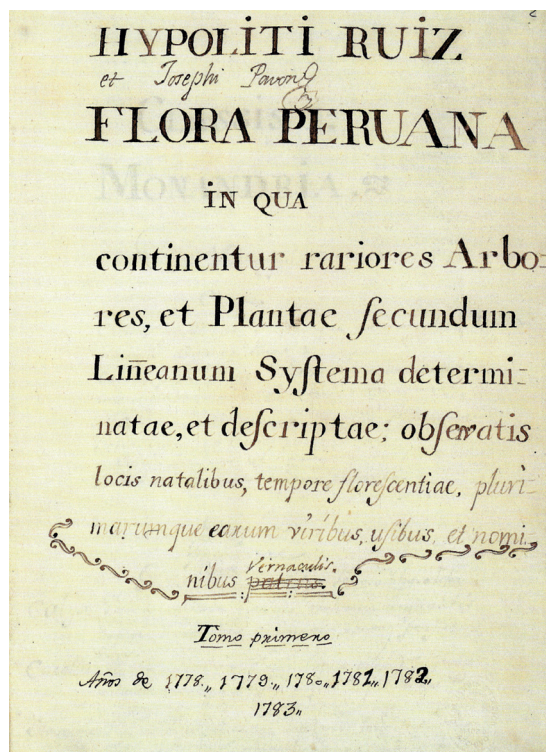 HYPOLITI RUIZ
et Josephi Pavon
FLORA PERUANA
IN QUA
continentur rariores Arbo=
res, et Plantae ſecundum
Lin̄eanum Syſtema determi=
natae, et deſcriptae; obſervatis
locis natalibus, tempore floreſcentiae, pluri=
marumque earum viribus, uſibus, et nomi=
Vernaculis.
nibus patriis.
Tomo primero
Años de 1778,, 1779,, 1780,, 1781,, 1782,,
1783,,